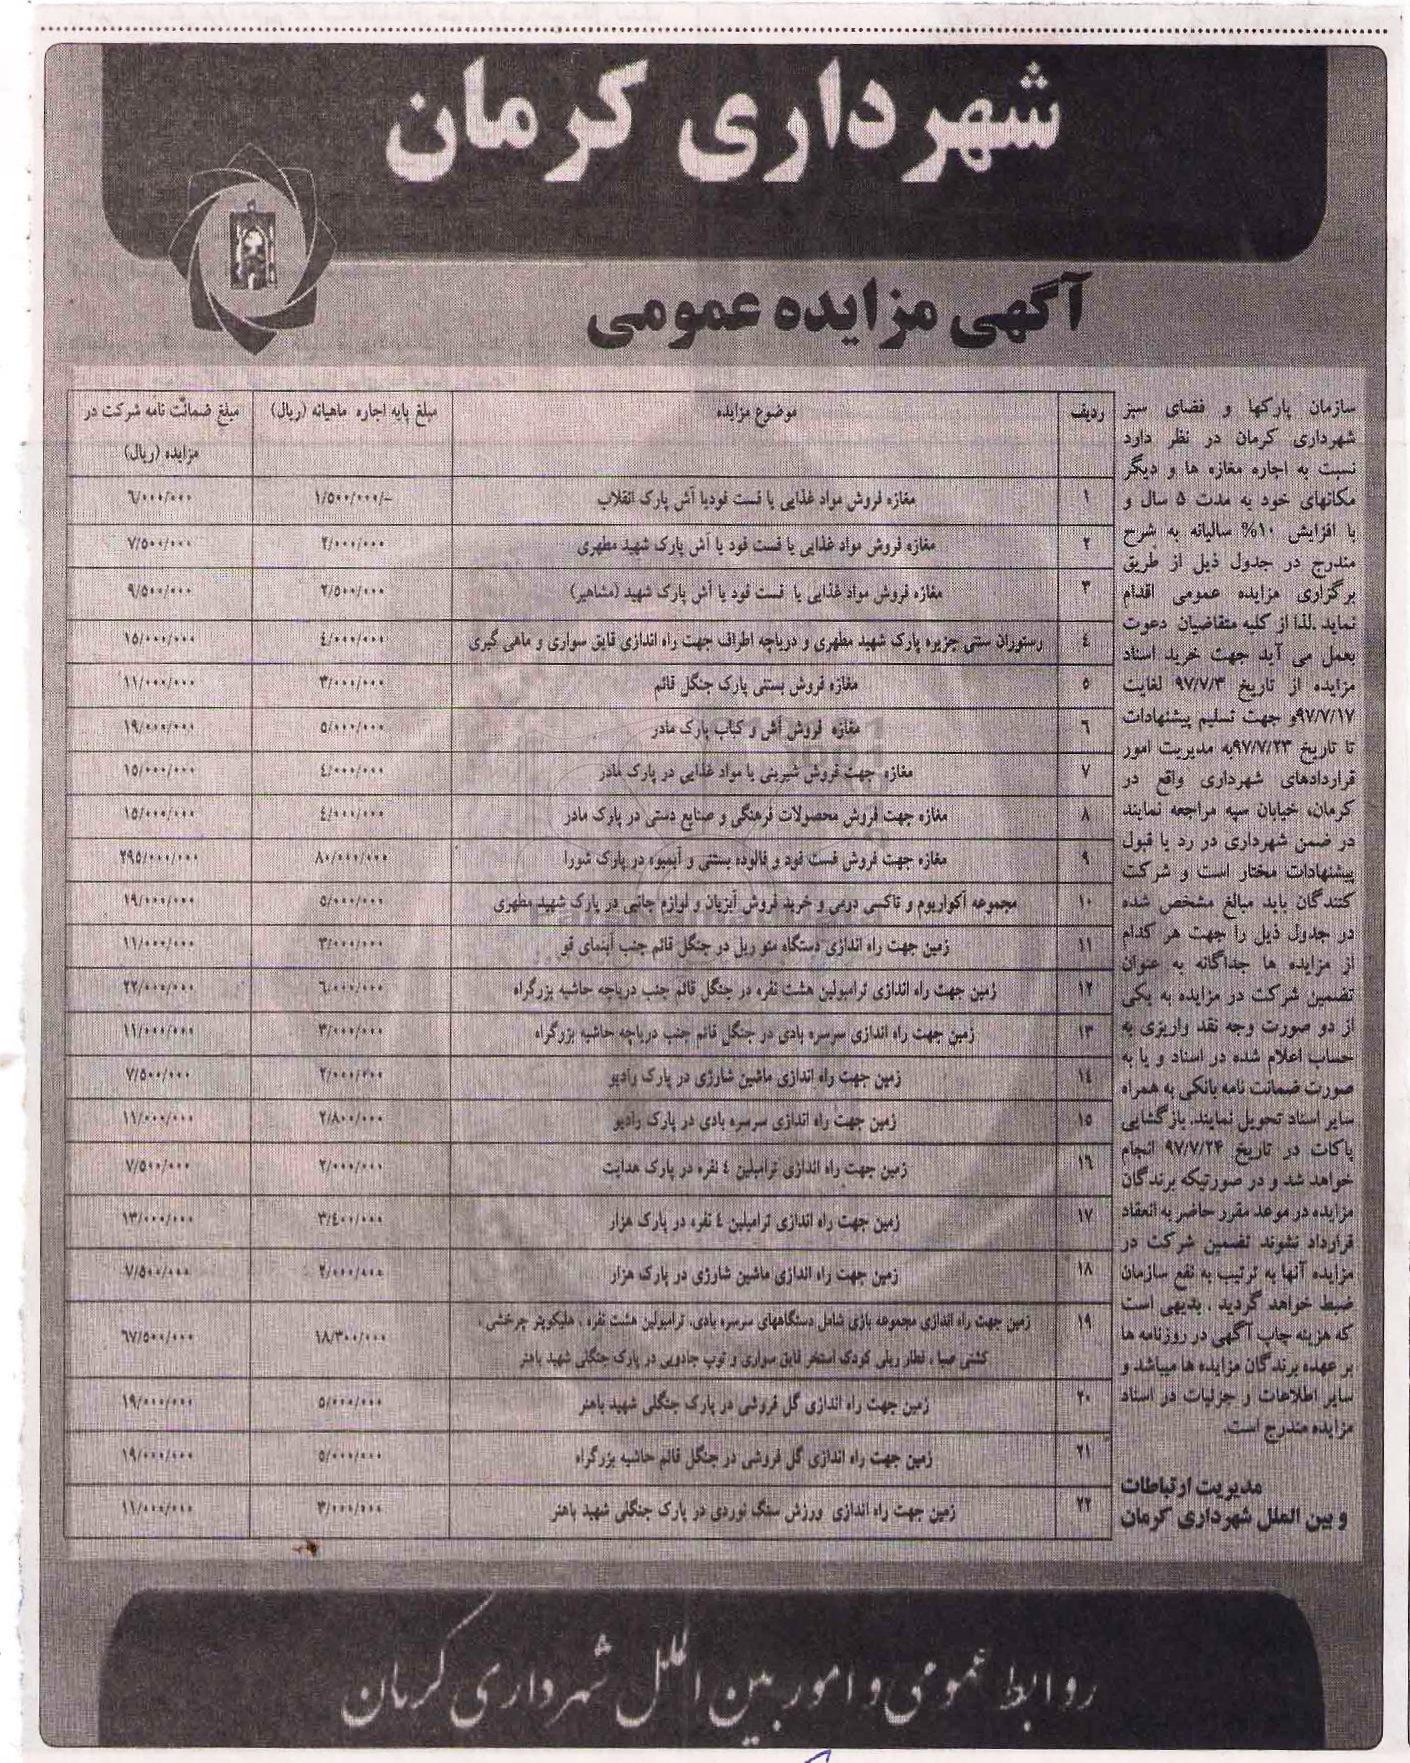 شهرداری کرمان
آگهی مزایده عمومی
سازمان پارکها و فضای سبز
شهرداری کرمان در نظر دارد
نسبت به اجاره مغازه ها و دیگر
مکانهای خود به مدت ۵ سال و
با افزایش ۱۰% سالیانه به شرح
مندرج در جدول ذیل از طریق
برگزاری مزایده عمومی اقدام
نماید .لذا از کلیه متقاضیان دعوت
بعمل می آید جهت خرید اسناد
مزایده از تاریخ ۹۷/۷/۳ لغایت
۹۷/۷/۱۷و جهت تسلیم پیشنهادات
تا تاریخ ۹۷/۷/۲۳به مدیریت امور
قراردادهای شهرداری واقع در
کرمان، خیابان سپه مراجعه نمایند
در ضمن شهرداری در رد یا قبول
پیشنهادات مختار است و شرکت
کنندگان باید مبالغ مشخص شده
در جدول ذیل را جهت هر کدام
از مزایده ها جداگانه به عنوان
تضمین شرکت در مزایده به یکی
از دو صورت وجه نقد واریزی به
حساب اعلام شده در اسناد و یا به
صورت ضمانت نامه بانکی به همراه
سایر اسناد تحویل نمایند. بازگشایی
پاکات در تاریخ ۹۷/۷/۲۴ انجام
خواهد شد و در صورتیکه برندگان
مزایده در موعد مقرر حاضر به انعقاد
قرارداد نشوند تضمین شرکت در
مزایده آنها به ترتیب به نفع سازمان
ضبط خواهد گردید . بدیهی است
که هزینه چاپ آگهی در روزنامه ها
بر عهده برندگان مزایده ها میباشد و
سایر اطلاعات و جزئیات در اسناد
مزایده مندرج است.
مدیریت ارتباطات
و بین الملل شهرداری کرمان
ردیف موضوع مزایده مبلغ پایه اجاره ماهیانه (ریال) مبلغ ضمانت نامه شرکت در
مزایده (ریال)
۱ مغازه فروش مواد غذایی یا فست فودیا آش پارک انقلاب ۱/۵۰۰/۰۰۰/- ۶/۰۰۰/۰۰۰
۲ مغازه فروش مواد غذایی یا فست فود یا آش پارک شهید مطهری ۲/۰۰۰/۰۰۰ ۷/۵۰۰/۰۰۰
۳ مغازه فروش مواد غذایی یا فست فود یا آش پارک شهید (مشاهیر) ۲/۵۰۰/۰۰۰ ۹/۵۰۰/۰۰۰
۴ رستوران سنتی جزیره پارک شهید مطهری و دریاچه اطراف جهت راه اندازی قایق سواری و ماهی گیری ۴/۰۰۰/۰۰۰ ۱۵/۰۰۰/۰۰۰
۵ مغازه فروش بستنی پارک جنگل قائم ۳/۰۰۰/۰۰۰ ۱۱/۰۰۰/۰۰۰
۶ مغازه فروش آش و کباب پارک مادر ۵/۰۰۰/۰۰۰ ۱۹/۰۰۰/۰۰۰
۷ مغازه جهت فروش شیرینی یا مواد غذایی در پارک مادر ۴/۰۰۰/۰۰۰ ۱۵/۰۰۰/۰۰۰
۸ مغازه جهت فروش محصولات فرهنگی و صنایع دستی در پارک مادر ۴/۰۰۰/۰۰۰ ۱۵/۰۰۰/۰۰۰
۹ مغازه جهت فروش فست فود و فالوده بستنی و آبمیوه در پارک شورا ۸۰/۰۰۰/۰۰۰ ۲۹۵/۰۰۰/۰۰۰
۱۰ مجموعه آکواریوم و تاکسی درمی و خرید فروش آبزیان و لوازم جانبی در پارک شهید مطهری ۵/۰۰۰/۰۰۰ ۱۹/۰۰۰/۰۰۰
۱۱ زمین جهت راه اندازی دستگاه منو ریل در جنگل قائم جنب آبنمای قو ۳/۰۰۰/۰۰۰ ۱۱/۰۰۰/۰۰۰
۱۲ زمین جهت راه اندازی ترامبولین هشت نفره در جنگل قائم جنب دریاچه حاشیه بزرگراه ۶/۰۰۰/۰۰۰ ۲۲/۰۰۰/۰۰۰
۱۳ زمین جهت راه اندازی سرسره بادی در جنگل قائم جنب دریاچه حاشیه بزرگراه ۳/۰۰۰/۰۰۰ ۱۱/۰۰۰/۰۰۰
۱۴ زمین جهت راه اندازی ماشین شارژی در پارک رادیو ۲/۰۰۰/۰۰۰ ۷/۵۰۰/۰۰۰
۱۵ زمین جهت راه اندازی سرسره بادی در پارک رادیو ۲/۸۰۰/۰۰۰ ۱۱/۰۰۰/۰۰۰
۱۶ زمین جهت راه اندازی ترامپلین ۴ نفره در پارک هدایت ۲/۰۰۰/۰۰۰ ۷/۵۰۰/۰۰۰
۱۷ زمین جهت راه اندازی ترامپلین ۴ نفره در پارک هزار ۳/۴۰۰/۰۰۰ ۱۳/۰۰۰/۰۰۰
۱۸ زمین جهت راه اندازی ماشین شارژی در پارک هزار ۲/۰۰۰/۰۰۰ ۷/۵۰۰/۰۰۰
۱۹ زمین جهت راه اندازی مجموعه بازی شامل دستگاههای سرسره بادی، ترامبولین هشت نفره ، هلیکوپتر چرخشی ، ۱۸/۳۰۰/۰۰۰ ۶۷/۵۰۰/۰۰۰
کشتی صبا ، قطار ریلی کودک استخر قایق سواری و توپ جادویی در پارک جنگلی شهید باهنر
۲۰ زمین جهت راه اندازی گل فروشی در پارک جنگلی شهید باهنر ۵/۰۰۰/۰۰۰ ۱۹/۰۰۰/۰۰۰
۲۱ زمین جهت راه اندازی گل فروشی در جنگل قائم حاشیه بزرگراه ۵/۰۰۰/۰۰۰ ۱۹/۰۰۰/۰۰۰
۲۲ زمین جهت راه اندازی ورزش سنگ نوردی در پارک جنگلی شهید باهنر ۳/۰۰۰/۰۰۰ ۱۱/۰۰۰/۰۰۰
روابط عمومی و امور بین الملل شهرداری کرمان